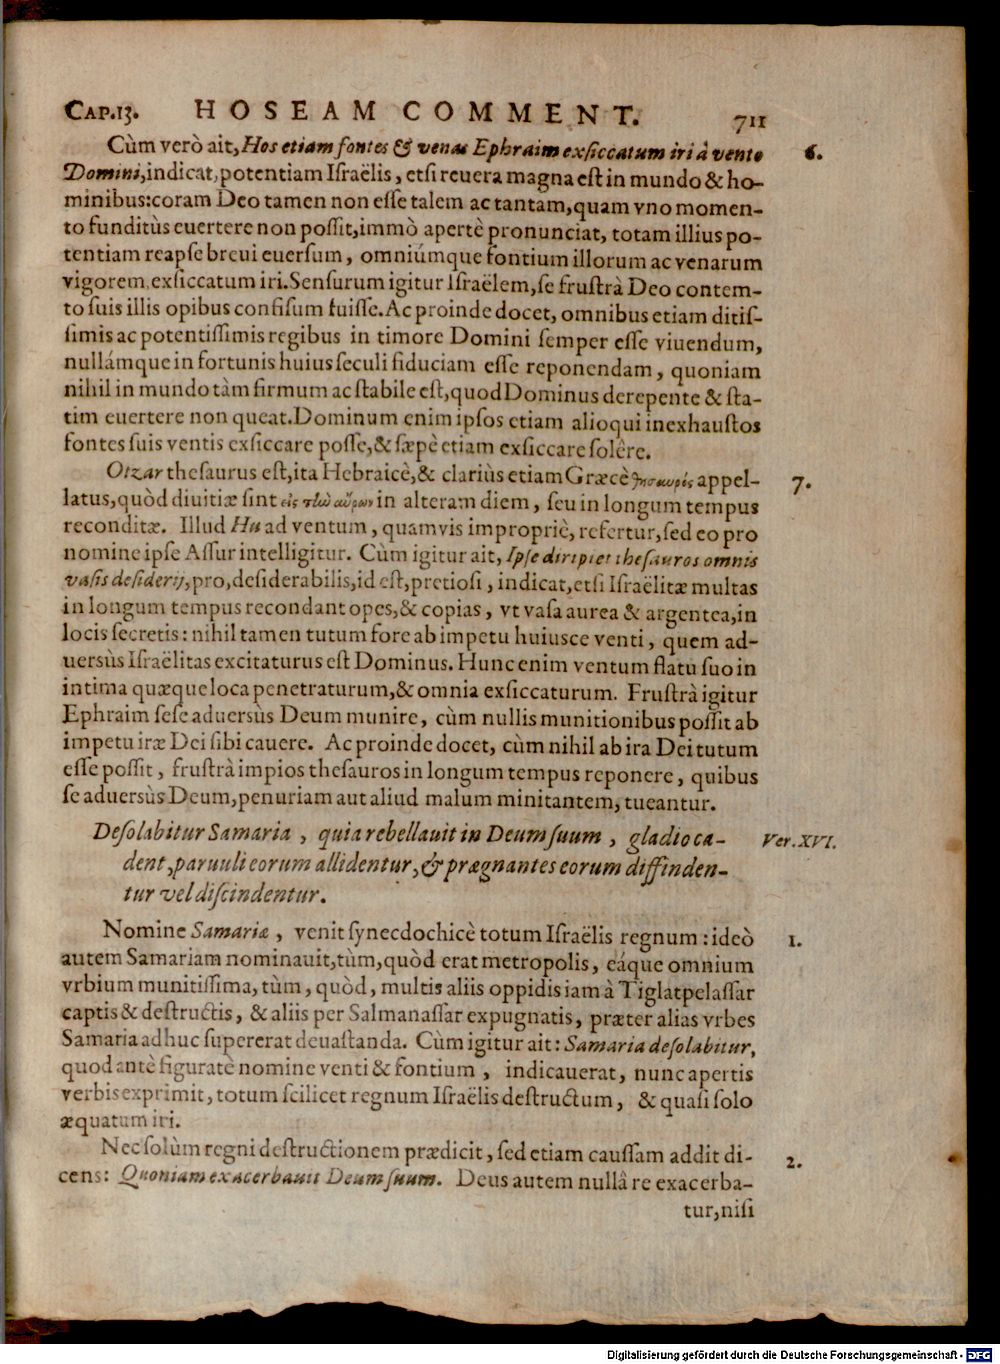 CAP.13. HOSEAM COMMENT. 711
Cùm verò ait, Hos etiam fontes & venas Ephraim exsiccatum iri à vento 6.
Domini, indicat, potentiam Israëlis, etsi reuera magna est in mundo & ho-
minibus: coram Deo tamen non esse talem ac tantam, quam vno momen-
to funditùs euertere non possit, immò apertè pronunciat, totam illius po-
tentiam reapse breui euersum, omniúmque fontium illorum ac venarum
vigorem exsiccatum iri. Sensurum igitur Israëlem, se frustrà Deo contem-
to suis illis opibus confisum fuisse. Ac proinde docet, omnibus etiam ditis-
simis ac potentissimis regibus in timore Domini semper esse viuendum,
nullámque in fortunis huius seculi fiduciam esse reponendam, quoniam
nihil in mundo tàm firmum ac stabile est, quod Dominus derepente & sta-
tim euertere non queat. Dominum enim ipsos etiam alioqui inexhaustos
fontes suis ventis exsiccare posse, & sæpè etiam exsiccare solêre.
Otzar thesaurus est, ita Hebraicè, & clariùs etiam Græcè θησαυρός appel- 7.
latus, quòd diuitiæ sint εἰς τὴν αὔριον in alteram diem, seu in longum tempus
reconditæ. Illud Hu ad ventum, quamvis impropriè, refertur, sed eo pro
nomine ipse Assur intelligitur. Cùm igitur ait, Ipse diripiet thesauros omnis
vasis desiderij, pro, desiderabilis, id est, pretiosi, indicat, etsi Israëlitæ multas
in longum tempus recondant opes, & copias, vt vasa aurea & argentea, in
locis secretis: nihil tamen tutum fore ab impetu huiusce venti, quem ad-
uersùs Israëlitas excitaturus est Dominus. Hunc enim ventum flatu suo in
intima quæque loca penetraturum, & omnia exsiccaturum. Frustrà igitur
Ephraim sese aduersùs Deum munire, cùm nullis munitionibus possit ab
impetu iræ Dei sibi cauere. Ac proinde docet, cùm nihil ab ira Dei tutum
esse possit, frustrà impios thesauros in longum tempus reponere, quibus
se aduersùs Deum, penuriam aut aliud malum minitantem, tueantur.
Desolabitur Samaria, quia rebellauit in Deum suum, gladio ca- Ver. XVI.
dent, paruuli eorum allidentur, & prægnantes eorum diffinden-
tur vel discindentur.
Nomine Samariæ, venit synecdochicè totum Israëlis regnum: ideò 1.
autem Samariam nominauit, tùm, quòd erat metropolis, eáque omnium
vrbium munitissima, tùm, quòd, multis aliis oppidis iam à Tiglatpelassar
captis & destructis, & aliis per Salmanassar expugnatis, præter alias vrbes
Samaria adhuc supererat deuastanda. Cùm igitur ait: Samaria desolabitur,
quod antè figuratè nomine venti & fontium, indicauerat, nunc apertis
verbis exprimit, totum scilicet regnum Israëlis destructum, & quasi solo
æquatum iri.
Nec solùm regni destructionem prædicit, sed etiam caussam addit di- 2.
cens: Quoniam exacerbauit Deum suum. Deus autem nullâ re exacerba-
tur, nisi
Digitalisierung gefördert durch die Deutsche Forschungsgemeinschaft - DFG